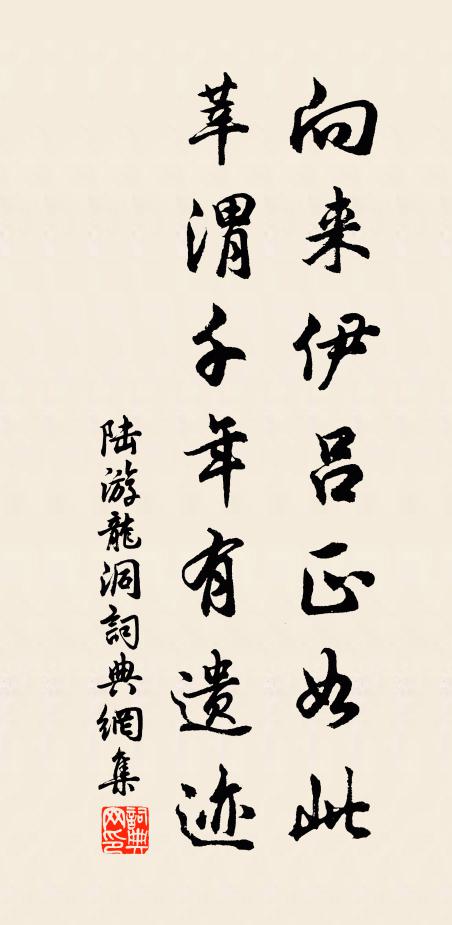 向来伊吕正如此
莘渭千年有遗迹
陆游龍洞詞典網集
詞典网印